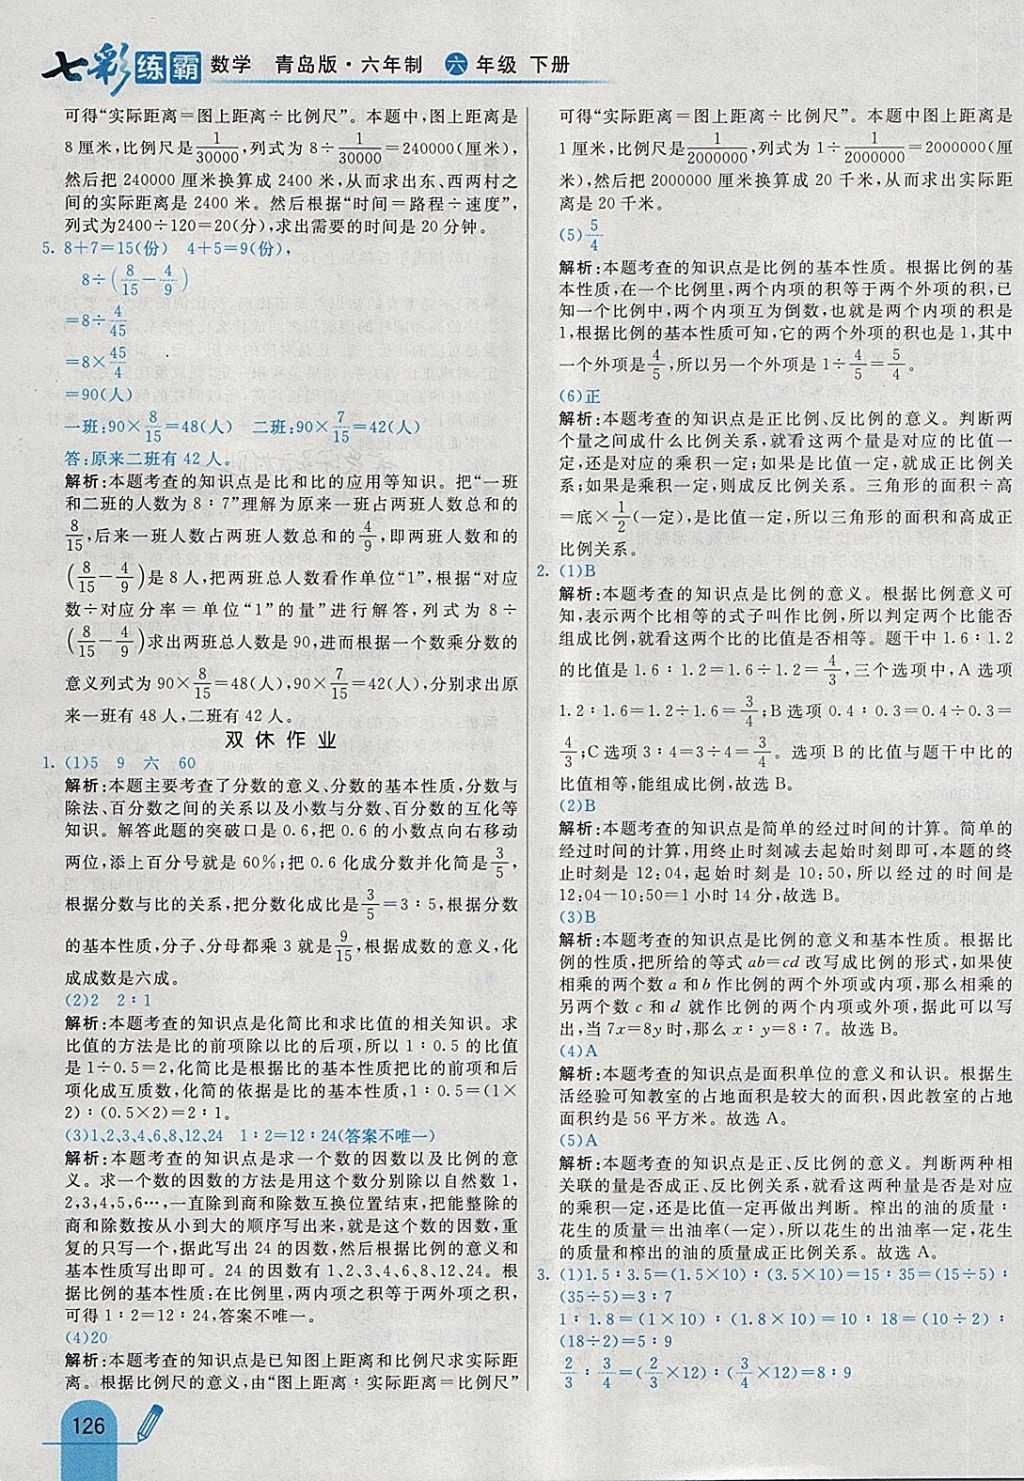 七彩练霸 数学 青岛版·六年制 六年级 下册
可得“实际距离＝图上距离÷比例尺”。本题中,图上距离是
8厘米,比例尺是1/30000,列式为 8÷1/30000＝240000(厘米),
然后把 240000 厘米换算成 2400 米,从而求出东、西两村之
间的实际距离是 2400 米。然后根据“时间＝路程÷速度”,
列式为2400÷120＝20(分),求出需要的时间是 20 分钟。
5. 8＋7＝15(份) 4＋5＝9(份),
8÷(8/15－4/9)
＝8÷4/45
＝8×45/4
＝90(人)
一班:90×8/15＝48(人) 二班:90×7/15＝42(人)
答:原来二班有 42 人。
解析:本题考查的知识点是比和比的应用等知识。把“一班
和二班的人数为 8∶7”理解为原来一班占两班人数总和的
8/15,后来一班人数占两班人数总和的4/9,即两班人数和的
(8/15－4/9)是 8 人,把两班总人数看作单位“1”,根据“对应
数÷对应分率＝单位“1”的量”进行解答,列式为 8÷
(8/15－4/9)求出两班总人数是 90,进而根据一个数乘分数的
意义列式为 90×8/15＝48(人),90×7/15＝42(人),分别求出原
来一班有 48 人,二班有 42 人。
双休作业
1. (1)5 9 六 60
解析:本题主要考查了分数的意义、分数的基本性质,分数与
除法、百分数之间的关系以及小数与分数、百分数的互化等
知识。解答此题的突破口是 0.6,把 0.6 的小数点向右移动
两位,添上百分号就是 60%;把 0.6 化成分数并化简是3/5,
根据分数与比的关系,把分数化成比是3/5＝3∶5,根据分数
的基本性质,分子、分母都乘 3 就是9/15,根据成数的意义,化
成成数是六成。
(2)2 2∶1
解析:本题考查的知识点是化简比和求比值的相关知识。求
比值的方法是比的前项除以比的后项,所以 1∶0.5 的比值
是 1÷0.5＝2,化简比是根据比的基本性质把比的前项和后
项化成互质数,化简的依据是比的基本性质,1∶0.5＝(1×
2)∶(0.5×2)＝2∶1。
(3)1,2,3,4,6,8,12,24 1∶2＝12∶24(答案不唯一)
解析:本题考查的知识点是求一个数的因数以及比例的意
义。求一个数的因数的方法是用这个数分别除以自然数 1,
2,3,4,5,6…,一直除到商和除数互换位置结束,把能整除的
商和除数按从小到大的顺序写出来,就是这个数的因数,重
复的只写一个,据此写出 24 的因数,然后根据比例的意义和
基本性质写出即可。24 的因数有 1、2、3、4、6、8、12、24。根
据比例的基本性质:在比例里,两内项之积等于两外项之积,
可得 1∶2＝12∶24,答案不唯一。
(4)20
解析:本题考查的知识点是已知图上距离和比例尺求实际距
离。根据比例尺的意义,由“图上距离∶实际距离＝比例尺”
126
可得“实际距离＝图上距离÷比例尺”。本题中图上距离是
1厘米,比例尺是1/2000000,列式为 1÷1/2000000＝2000000(厘
米),然后把 2000000 厘米换算成 20 千米,从而求出实际距
离是 20 千米。
(5)5/4
解析:本题考查的知识点是比例的基本性质。根据比例的基
本性质,在一个比例里,两个内项的积等于两个外项的积,已
知一个比例中,两个内项互为倒数,也就是两个内项的积是
1,根据比例的基本性质可知,它的两个外项的积也是 1,其中
一个外项是4/5,所以另一个外项是 1÷4/5＝5/4。
(6)正
解析:本题考查的知识点是正比例、反比例的意义。判断两
个量之间成什么比例关系,就看这两个量是对应的比值一
定,还是对应的乘积一定;如果是比值一定,就成正比例关
系;如果是乘积一定,则成反比例关系。三角形的面积÷高
＝底×1/2(一定),是比值一定,所以三角形的面积和高成正
比例关系。
2. (1)B
解析:本题考查的知识点是比例的意义。根据比例意义可
知,表示两个比相等的式子叫作比例,所以判定两个比能否
组成比例,就看这两个比的比值是否相等。题干中 1.6∶1.2
的比值是 1.6∶1.2＝1.6÷1.2＝4/3,三个选项中,A 选项
1.2∶1.6＝1.2÷1.6＝3/4;B 选项 0.4∶0.3＝0.4÷0.3＝
4/3;C 选项 3∶4＝3÷4＝3/4。选项 B 的比值与题干中比的
比值相等,能组成比例,故选 B。
(2)B
解析:本题考查的知识点是简单的经过时间的计算。简单的
经过时间的计算,用终止时刻减去起始时刻即可,本题的终
止时刻是 12:04,起始时刻是 10:50,所以经过的时间是
12:04－10:50＝1 小时 14 分,故选 B。
(3)B
解析:本题考查的知识点是比例的意义和基本性质。根据比
例的性质,把所给的等式 ab＝cd 改写成比例的形式,如果使
相乘的两个数 a 和 b 作比例的两个外项或内项,那么相乘的
另两个数 c 和 d 就作比例的两个内项或外项,据此可以写
出,当 7x＝8y 时,那么 x∶y＝8∶7。故选 B。
(4)A
解析:本题考查的知识点是面积单位的意义和认识。根据生
活经验可知教室的占地面积是较大的面积,因此教室的占地
面积约是 56 平方米。故选 A。
(5)A
解析:本题考查的知识点是正、反比例的意义。判断两种相
关联的量是否成正、反比例关系,就看这两种量是否是对应
的乘积一定,或比值一定再做出判断。榨出的油的质量÷
花生的质量＝出油率(一定),所以花生的出油率一定,花生
的质量和榨出的油的质量成正比例关系。故选 A。
3. (1)1.5∶3.5＝(1.5×10)∶(3.5×10)＝15∶35＝(15÷5)∶
(35÷5)＝3∶7
1∶1.8＝(1×10)∶(1.8×10)＝10∶18＝(10÷2)∶
(18÷2)＝5∶9
2/3∶3/4＝(2/3×12)∶(3/4×12)＝8∶9